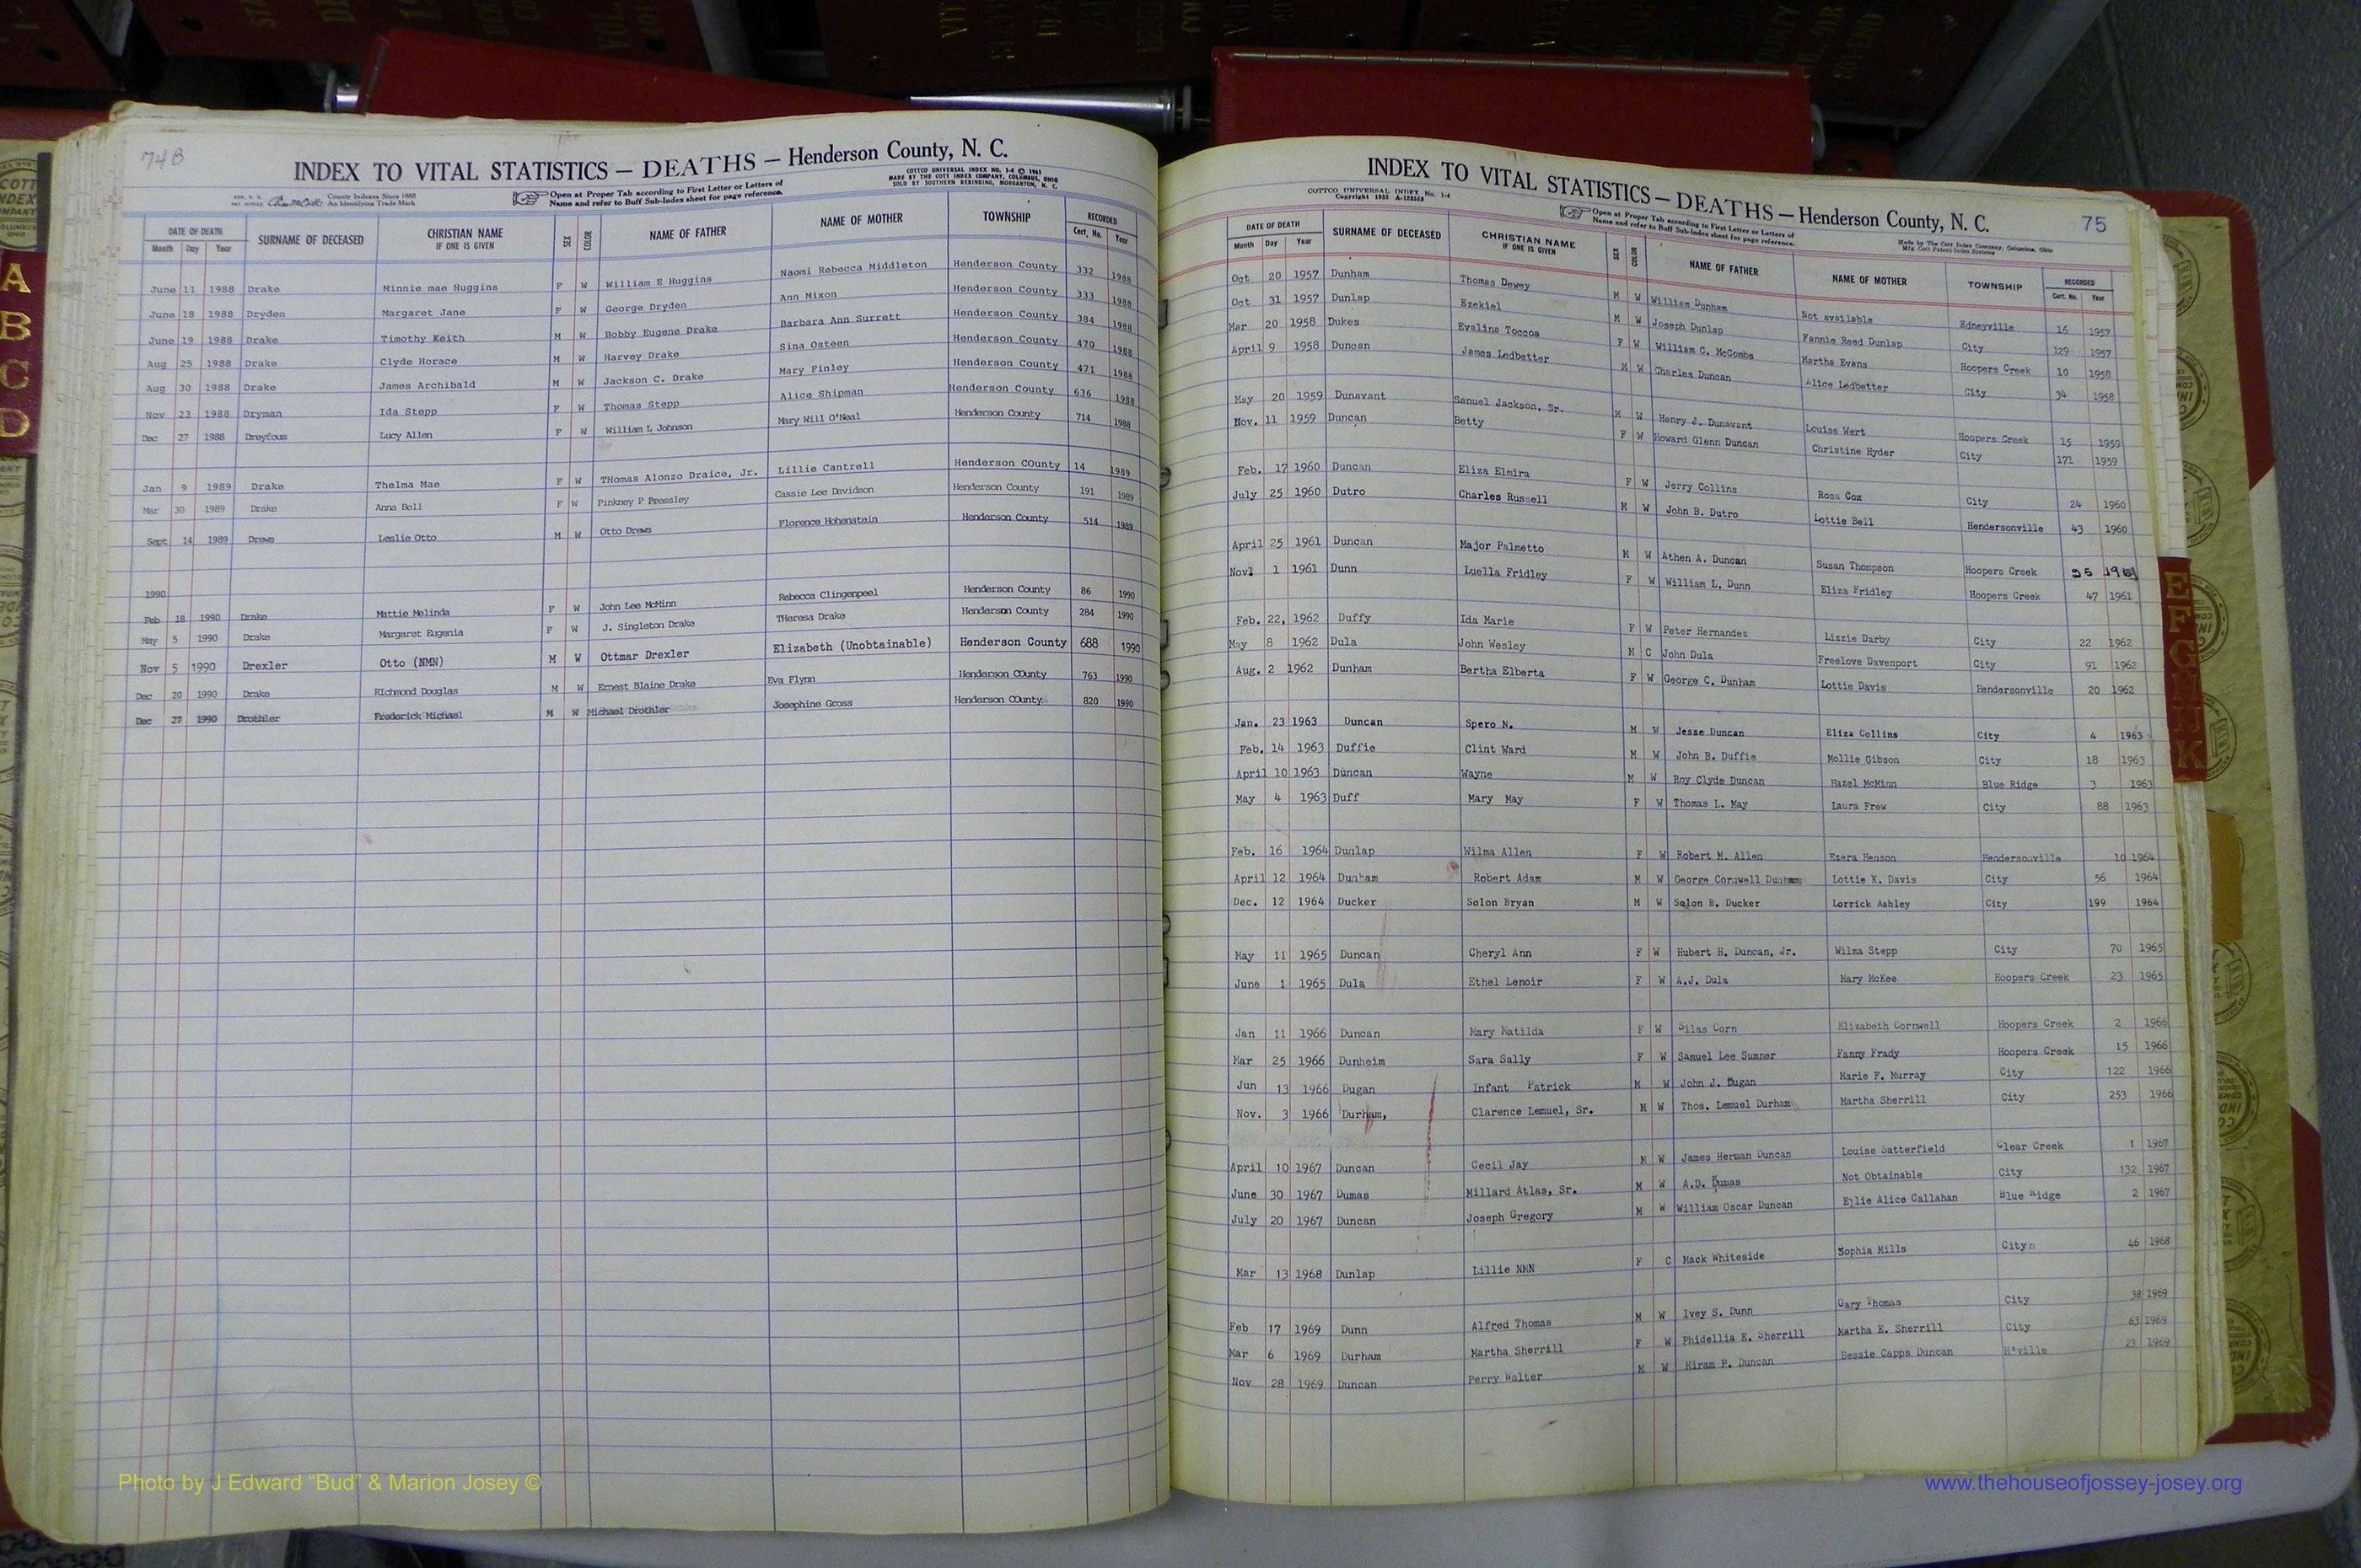 74B
INDEX TO VITAL STATISTICS — DEATHS — Henderson County, N. C.
County Indexes Since 1888
An Identifying Trade Mark
Open at Proper Tab according to First Letter or Letters of
Name and refer to Buff Sub-Index sheet for page reference.
COTTCO UNIVERSAL INDEX NO. 1-4 © 1961
MADE BY THE COTT INDEX COMPANY, COLUMBUS, OHIO
SOLD BY SOUTHERN REBINDING, MORGANTON, N. C.
DATE OF DEATH SURNAME OF DECEASED CHRISTIAN NAME IF ONE IS GIVEN SEX COLOR NAME OF FATHER NAME OF MOTHER TOWNSHIP RECORDED
Month Day Year Cert. No. Year
June 11 1988 Drake Minnie mae Huggins F W William E Huggins Naomi Rebecca Middleton Henderson County 332 1988
June 18 1988 Dryden Margaret Jane F W George Dryden Ann Mixon Henderson County 333 1988
June 19 1988 Drake Timothy Keith M W Bobby Eugene Drake Barbara Ann Surrett Henderson County 384 1988
Aug 25 1988 Drake Clyde Horace M W Harvey Drake Sina Osteen Henderson County 470 1988
Aug 30 1988 Drake James Archibald M W Jackson C. Drake Mary Finley Henderson County 471 1988
Nov 23 1988 Dryman Ida Stepp F W Thomas Stepp Alice Shipman Henderson County 636 1988
Dec 27 1988 Dreyfous Lucy Allen F W William L Johnson Mary Will O'Neal Henderson County 714 1988
Jan 9 1989 Drake Thelma Mae F W THomas Alonzo Draice, Jr. Lillie Cantrell Henderson COunty 14 1989
Mar 30 1989 Drake Anna Bell F W Pinkney P Pressley Cassie Lee Davidson Henderson County 191 1989
Sept 14 1989 Drews Leslie Otto M W Otto Drews Florence Hohenstein Henderson County 514 1989
1990
Feb 18 1990 Drake Mattie Melinda F W John Lee McMinn Rebecca Clingenpeel Henderson County 86 1990
May 5 1990 Drake Margaret Eugenia F W J. Singleton Drake THeresa Drake Henderson County 284 1990
Nov 5 1990 Drexler Otto (NMN) M W Ottmar Drexler Elizabeth (Unobtainable) Henderson County 688 1990
Dec 20 1990 Drake RIchmond Douglas M W Ernest Blaine Drake Eva Flynn Henderson COunty 763 1990
Dec 27 1990 Drothler Frederick Michael M W Michael Drothler Josephine Gross Henderson COunty 820 1990
INDEX TO VITAL STATISTICS — DEATHS — Henderson County, N. C.
75
COTTCO UNIVERSAL INDEX No. 1-4
Open at Proper Tab according to First Letter or Letters of
Name and refer to Buff Sub-Index sheet for page reference.
Made by The Cott Index Company, Columbus, Ohio
DATE OF DEATH SURNAME OF DECEASED CHRISTIAN NAME IF ONE IS GIVEN SEX COLOR NAME OF FATHER NAME OF MOTHER TOWNSHIP RECORDED
Month Day Year Cert. No. Year
Oct 20 1957 Dunham Thomas Dewey M W William Dunham Not available Edneyville 16 1957
Oct 31 1957 Dunlap Ezekiel M W Joseph Dunlap Fannie Reed Dunlap City 129 1957
Mar 20 1958 Dukes Evaline Toccoa F W William C. McCombs Martha Evans Hoopers Creek 10 1958
April 9 1958 Duncan James Ledbetter M W Charles Duncan Alice Ledbetter City 34 1958
May 20 1959 Dunavant Samuel Jackson, Sr. M W Henry J. Dunavant Louise Wert Hoopers Creek 15 1959
Nov. 11 1959 Duncan Betty F W Howard Glenn Duncan Christine Hyder City 171 1959
Feb. 17 1960 Duncan Eliza Elmira F W Jerry Collins Rosa Cox City 24 1960
July 25 1960 Dutro Charles Russell M W John B. Dutro Lottie Bell Hendersonville 43 1960
April 25 1961 Duncan Major Palmetto M W Athen A. Duncan Susan Thompson Hoopers Creek 1961
Nov 1 1961 Dunn Luella Fridley F W William L. Dunn Eliza Fridley Hoopers Creek 47 1961
Feb. 22, 1962 Duffy Ida Marie F W Peter Hernandez Lizzie Darby City 22 1962
May 8 1962 Dula John Wesley M C John Dula Freelove Davenport City 91 1962
Aug. 2 1962 Dunham Bertha Elberta F W George C. Dunham Lottie Davis Hendersonville 20 1962
Jan. 23 1963 Duncan Spero N. M W Jesse Duncan Eliza Collins City 4 1963
Feb. 14 1963 Duffie Clint Ward M W John B. Duffie Mollie Gibson City 18 1963
April 10 1963 Duncan Wayne M W Roy Clyde Duncan Hazel McMinn Blue Ridge 3 1963
May 4 1963 Duff Mary May F W Thomas L. May Laura Frew City 88 1963
Feb. 16 1964 Dunlap Wilma Allen F W Robert M. Allen Ezera Henson Hendersonville 10 1964
April 12 1964 Dunham Robert Adam M W George Cornwell Dunham Lottie K. Davis City 56 1964
Dec. 12 1964 Ducker Solon Bryan M W Solon B. Ducker Lorrick Ashley City 199 1964
May 11 1965 Duncan Cheryl Ann F W Hubert H. Duncan, Jr. Wilma Stepp City 70 1965
June 1 1965 Dula Ethel Lenoir F W A.J. Dula Mary McKee Hoopers Creek 23 1965
Jan 11 1966 Duncan Mary Matilda F W Silas Corn Elizabeth Cornwell Hoopers Creek 2 1966
Mar 25 1966 Dunheim Sara Sally F W Samuel Lee Sumner Fanny Frady Hoopers Creek 15 1966
Jun 13 1966 Dugan Infant Patrick M W John J. Dugan Marie F. Murray City 122 1966
Nov. 3 1966 Durham, Clarence Lemuel, Sr. M W Thos. Lemuel Durham Martha Sherrill City 253 1966
April 10 1967 Duncan Cecil Jay M W James Herman Duncan Louise Satterfield Clear Creek 1 1967
June 30 1967 Dumas Millard Atlas, Sr. M W A.D. Dumas Not Obtainable City 132 1967
July 20 1967 Duncan Joseph Gregory M W William Oscar Duncan Ellie Alice Callahan Blue Ridge 2 1967
Mar 13 1968 Dunlap Lillie NMN F C Mack Whiteside Sophia Mills Cityn 46 1968
Feb 17 1969 Dunn Alfred Thomas M W Ivey S. Dunn Gary Thomas City 38 1969
Mar 6 1969 Durham Martha Sherrill F W Phidellia E. Sherrill Martha E. Sherrill City 63 1969
Nov 28 1969 Duncan Perry Walter M W Hiram P. Duncan Bessie Capps Duncan H'ville 23 1969
A
B
C
D
E
F
G
K
Photo by J Edward “Bud” & Marion Josey ©
www.thehouseofjossey-josey.org